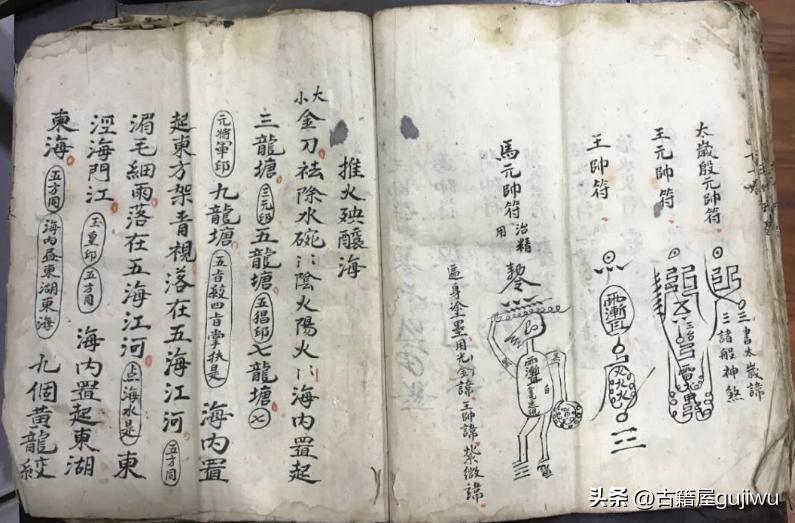 太歲殷元帥符
三書太歲諱
三諸般神煞
王元帥符
王帥符
馬元帥符 治精用
遍身塗墨用光金諱王帥諱紫微諱
推火殃釀海
大小金刀祛除水碗〻陰火陽火〻海內置起
三龍塘 三元印 五龍塘 五猖印 七龍塘 七
元將軍印 九龍塘 五音殺四音掌扶是 海內置
起東方架青視落在五海江河 五方同
湄毛細雨落在五海江河 海水是 東
涇海門江 玉皇印 五方同 海內置起東湖
東海 五方同 海內益東湖東海 九個黃龍絞
头条 @古籍屋gujiwu